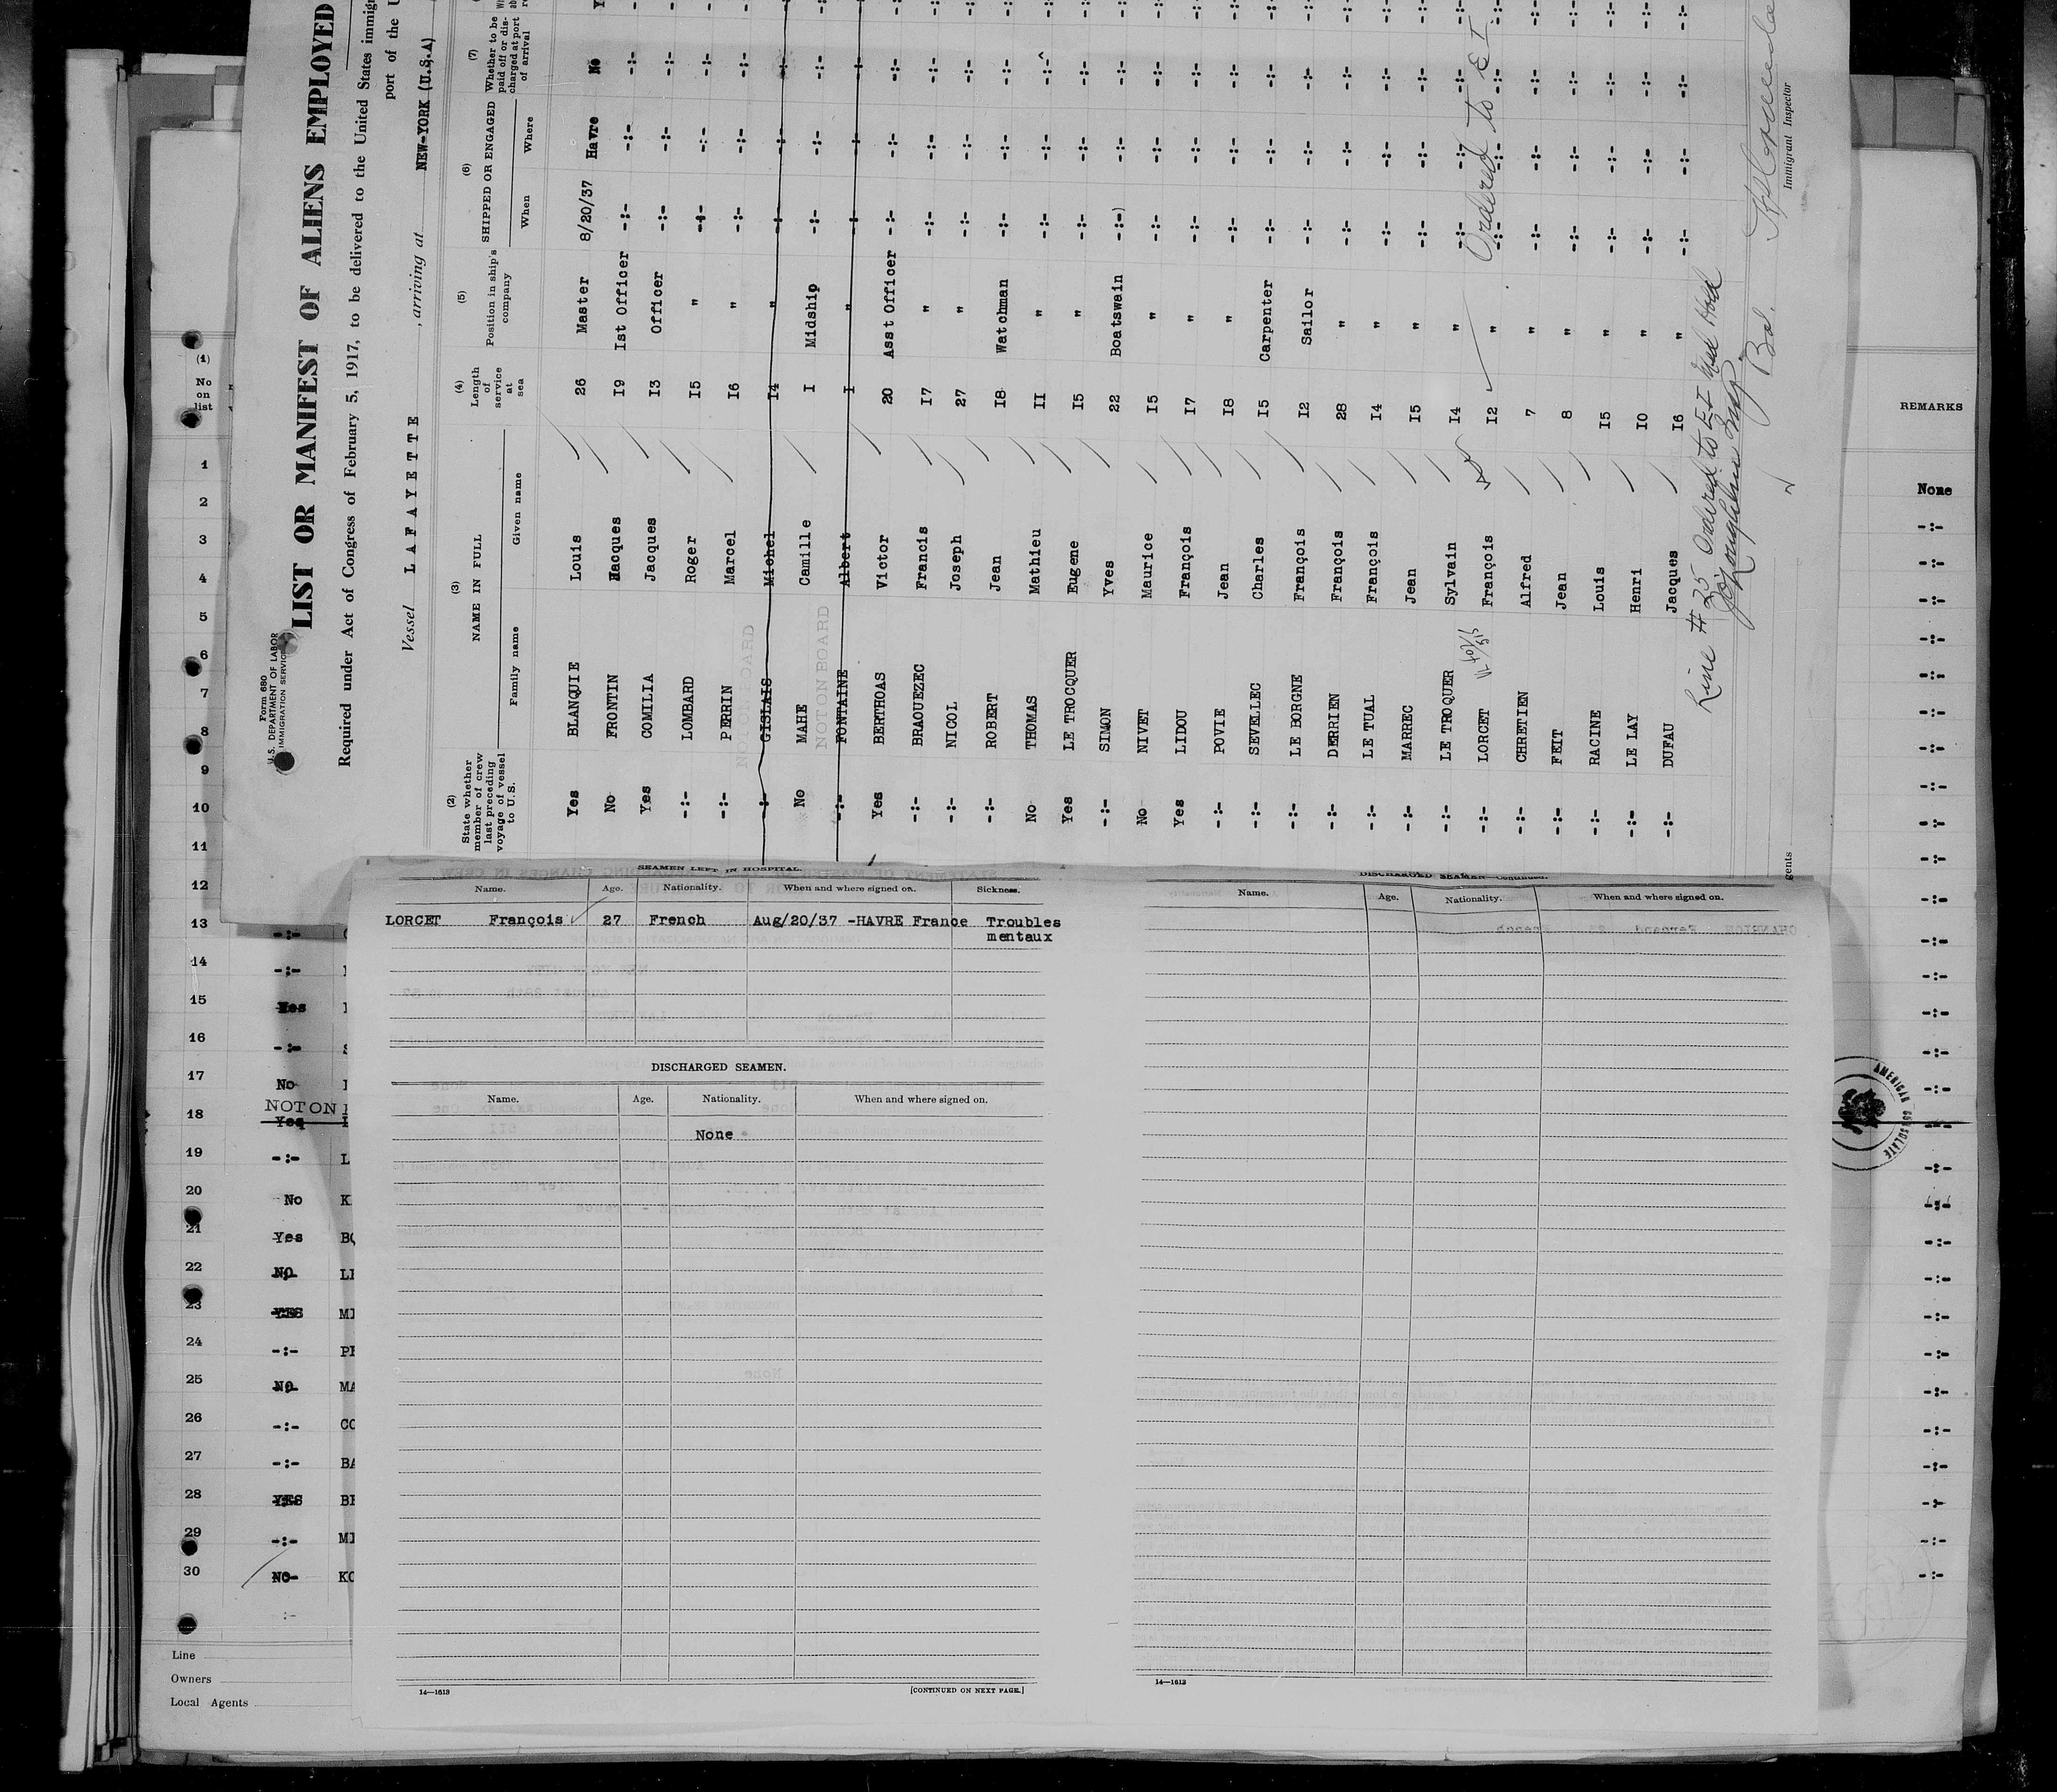 Form 680
U.S. DEPARTMENT OF LABOR
IMMIGRATION SERVICE
LIST OR MANIFEST OF ALIENS EMPLOYED
Required under Act of Congress of February 5, 1917, to be delivered to the United States immig
port of the U
Vessel LAFAYETTE , arriving at NEW-YORK (U.S.A)
(2) State whether member of crew last preceding voyage of vessel to U.S. (3) NAME IN FULL Family name Given name (4) Length of service at sea (5) Position in ship's company (6) SHIPPED OR ENGAGED When Where (7) Whether to be paid off or discharged at port of arrival
Yes BLANQUIE Louis 26 Master 8/20/37 Havre No
No FRONTIN Jacques I9 Ist Officer -:- -:- -:-
Yes COMILIA Jacques I3 Officer -:- -:- -:-
-:- LOMBARD Roger I5 " -:- -:- -:-
-:- PERRIN Marcel I6 " -:- -:- -:-
-:- GISLAIS Michel I4 " -:- -:- -:-
NOT ON BOARD
No MAHE Camille I Midship -:- -:- -:-
-:- FONTAINE Albert I " -:- -:- -:-
NOT ON BOARD
Yes BERTHOAS Victor 20 Asst Officer -:- -:- -:-
-:- BRAOUEZEC Francis I7 " -:- -:- -:-
-:- NICOL Joseph 27 " -:- -:- -:-
-:- ROBERT Jean I8 Watchman -:- -:- -:-
No THOMAS Mathieu II " -:- -:- -:-
Yes LE TROCQUER Eugene I5 " -:- -:- -:-
-:- SIMON Yves 22 Boatswain -:- -:- -:-
No NIVET Maurice I5 " -:- -:- -:-
Yes LIDOU François I7 " -:- -:- -:-
-:- POVIE Jean I8 " -:- -:- -:-
-:- SEVELLEC Charles I5 Carpenter -:- -:- -:-
-:- LE BORGNE François I2 Sailor -:- -:- -:-
-:- DERRIEN François 28 " -:- -:- -:-
-:- LE TUAL François I4 " -:- -:- -:-
-:- MARREC Jean I5 " -:- -:- -:-
-:- LE TROQUER Sylvain I4 " -:- -:- -:-
-:- LORCET François I2 " -:- -:- -:- Ordered to E I
-:- CHRETIEN Alfred 7 " -:- -:- -:-
-:- FEIT Jean 8 " -:- -:- -:-
-:- RACINE Louis I5 " -:- -:- -:-
-:- LE LAY Henri I0 " -:- -:- -:-
-:- DUFAU Jacques I6 " -:- -:- -:-
Line # 25 Ordered to EI Med Hold
Immigrant Inspector
gents
(1)
No on list
REMARKS
1 None
2 -:-
3 -:-
4 -:-
5 -:-
6 -:-
7 -:-
8 -:-
9 -:-
10 -:-
11 -:-
12 -:-
13 -:-
14 -:-
15 Yes
16 -:-
17 No
NOT ON
18 Yes
19 -:- L
20 No K
21 Yes BO
22 NO LE
23 YES ME
24 -:- PE
25 NO MA
26 -:- CO
27 -:- BA
28 YES BE
29 -:- ME
30 NO- KO
:-
AMERICAN CONSULATE
Line
Owners
Local Agents
SEAMEN LEFT IN HOSPITAL.
Name. Age. Nationality. When and where signed on. Sickness.
LORCET François 27 French Aug/20/37 -HAVRE France Troubles
mentaux
DISCHARGED SEAMEN.
Name. Age. Nationality. When and where signed on.
None
14—1613 [CONTINUED ON NEXT PAGE.]
DISCHARGED SEAMEN—Continued.
Name. Age. Nationality. When and where signed on.
14—1613